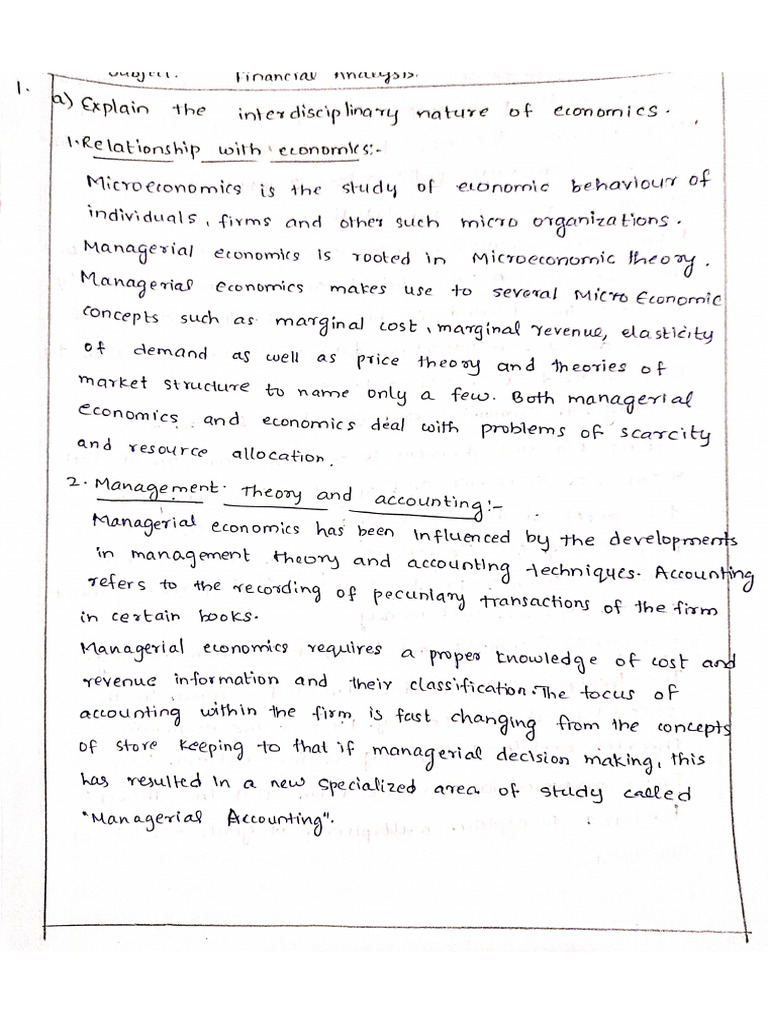 Subject: Financial Analysis.
1.
a) Explain the interdisciplinary nature of economics.
1. Relationship with economics:-
Microeconomics is the study of economic behaviour of
individuals, firms and other such micro organizations.
Managerial economics is rooted in Microeconomic theory.
Managerial economics makes use to several Micro Economic
concepts such as marginal cost, marginal revenue, elasticity
of demand as well as price theory and theories of
market structure to name only a few. Both managerial
economics and economics deal with problems of scarcity
and resource allocation.
2. Management Theory and accounting:-
Managerial economics has been influenced by the developments
in management theory and accounting techniques. Accounting
refers to the recording of pecuniary transactions of the firm
in certain books.
Managerial economics requires a proper knowledge of cost and
revenue information and their classification. The focus of
accounting within the firm is fast changing from the concepts
of store keeping to that if managerial decision making, this
has resulted in a new specialized area of study called
"Managerial Accounting".